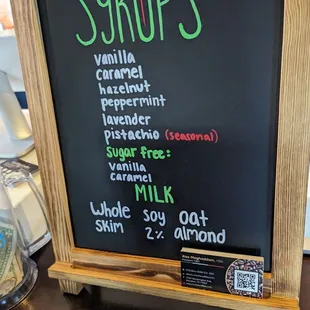 SYRUPS
vanilla
caramel
hazelnut
peppermint
lavender
pistachio (seasonal)
sugar free:
vanilla
caramel
MILK
Whole soy oat
skim 2% almond